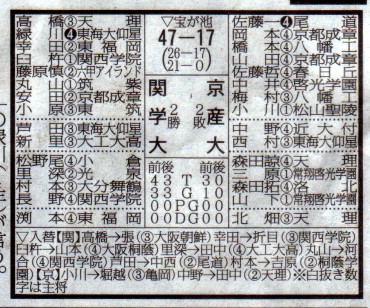 ▽宝が池
47―17
(26―17)
(21―0)
関学大 2勝
京産大 2敗
高橋③天理
緑川❹東海大仰星
幸田②東福岡
臼杵①関西学院
藤原慎②六甲アイランド
丸山①筑紫
安田②京都成章
小原③東筑
芦田③東海大仰星
新里③大工大高
松野尾④小倉
里深②光泉
村本③大分舞鶴
長野④関西学院
渕本④東福岡
佐藤一❹尾道
岡本④京都成章
橋本④八幡工
山田④京都成章
佐藤哲④春日丘
中井④啓光学園
梅村③八幡工
小川①松山聖陵
中野④近大付
西村③東海大仰星
森田諒④天理
三原①常翔啓光学園
森田拓④洛北
山下①常翔啓光学園
北畑③天理
前後 前後
43 T 30
43 G 10
00 PG 00
00 DG 00
▽入替【関】高橋→張(③大阪朝鮮)幸田→折目(③関西学院)
臼杵→山本(④大阪桐蔭)里深→田中(④大工大高)丸山→河
合(④関西学院)芦田→中西(②尾道)村本→吉原(②桐蔭学
園)【京】小川→堀越(③亀岡)中野→田中(②天理)※白抜き数
字は主将